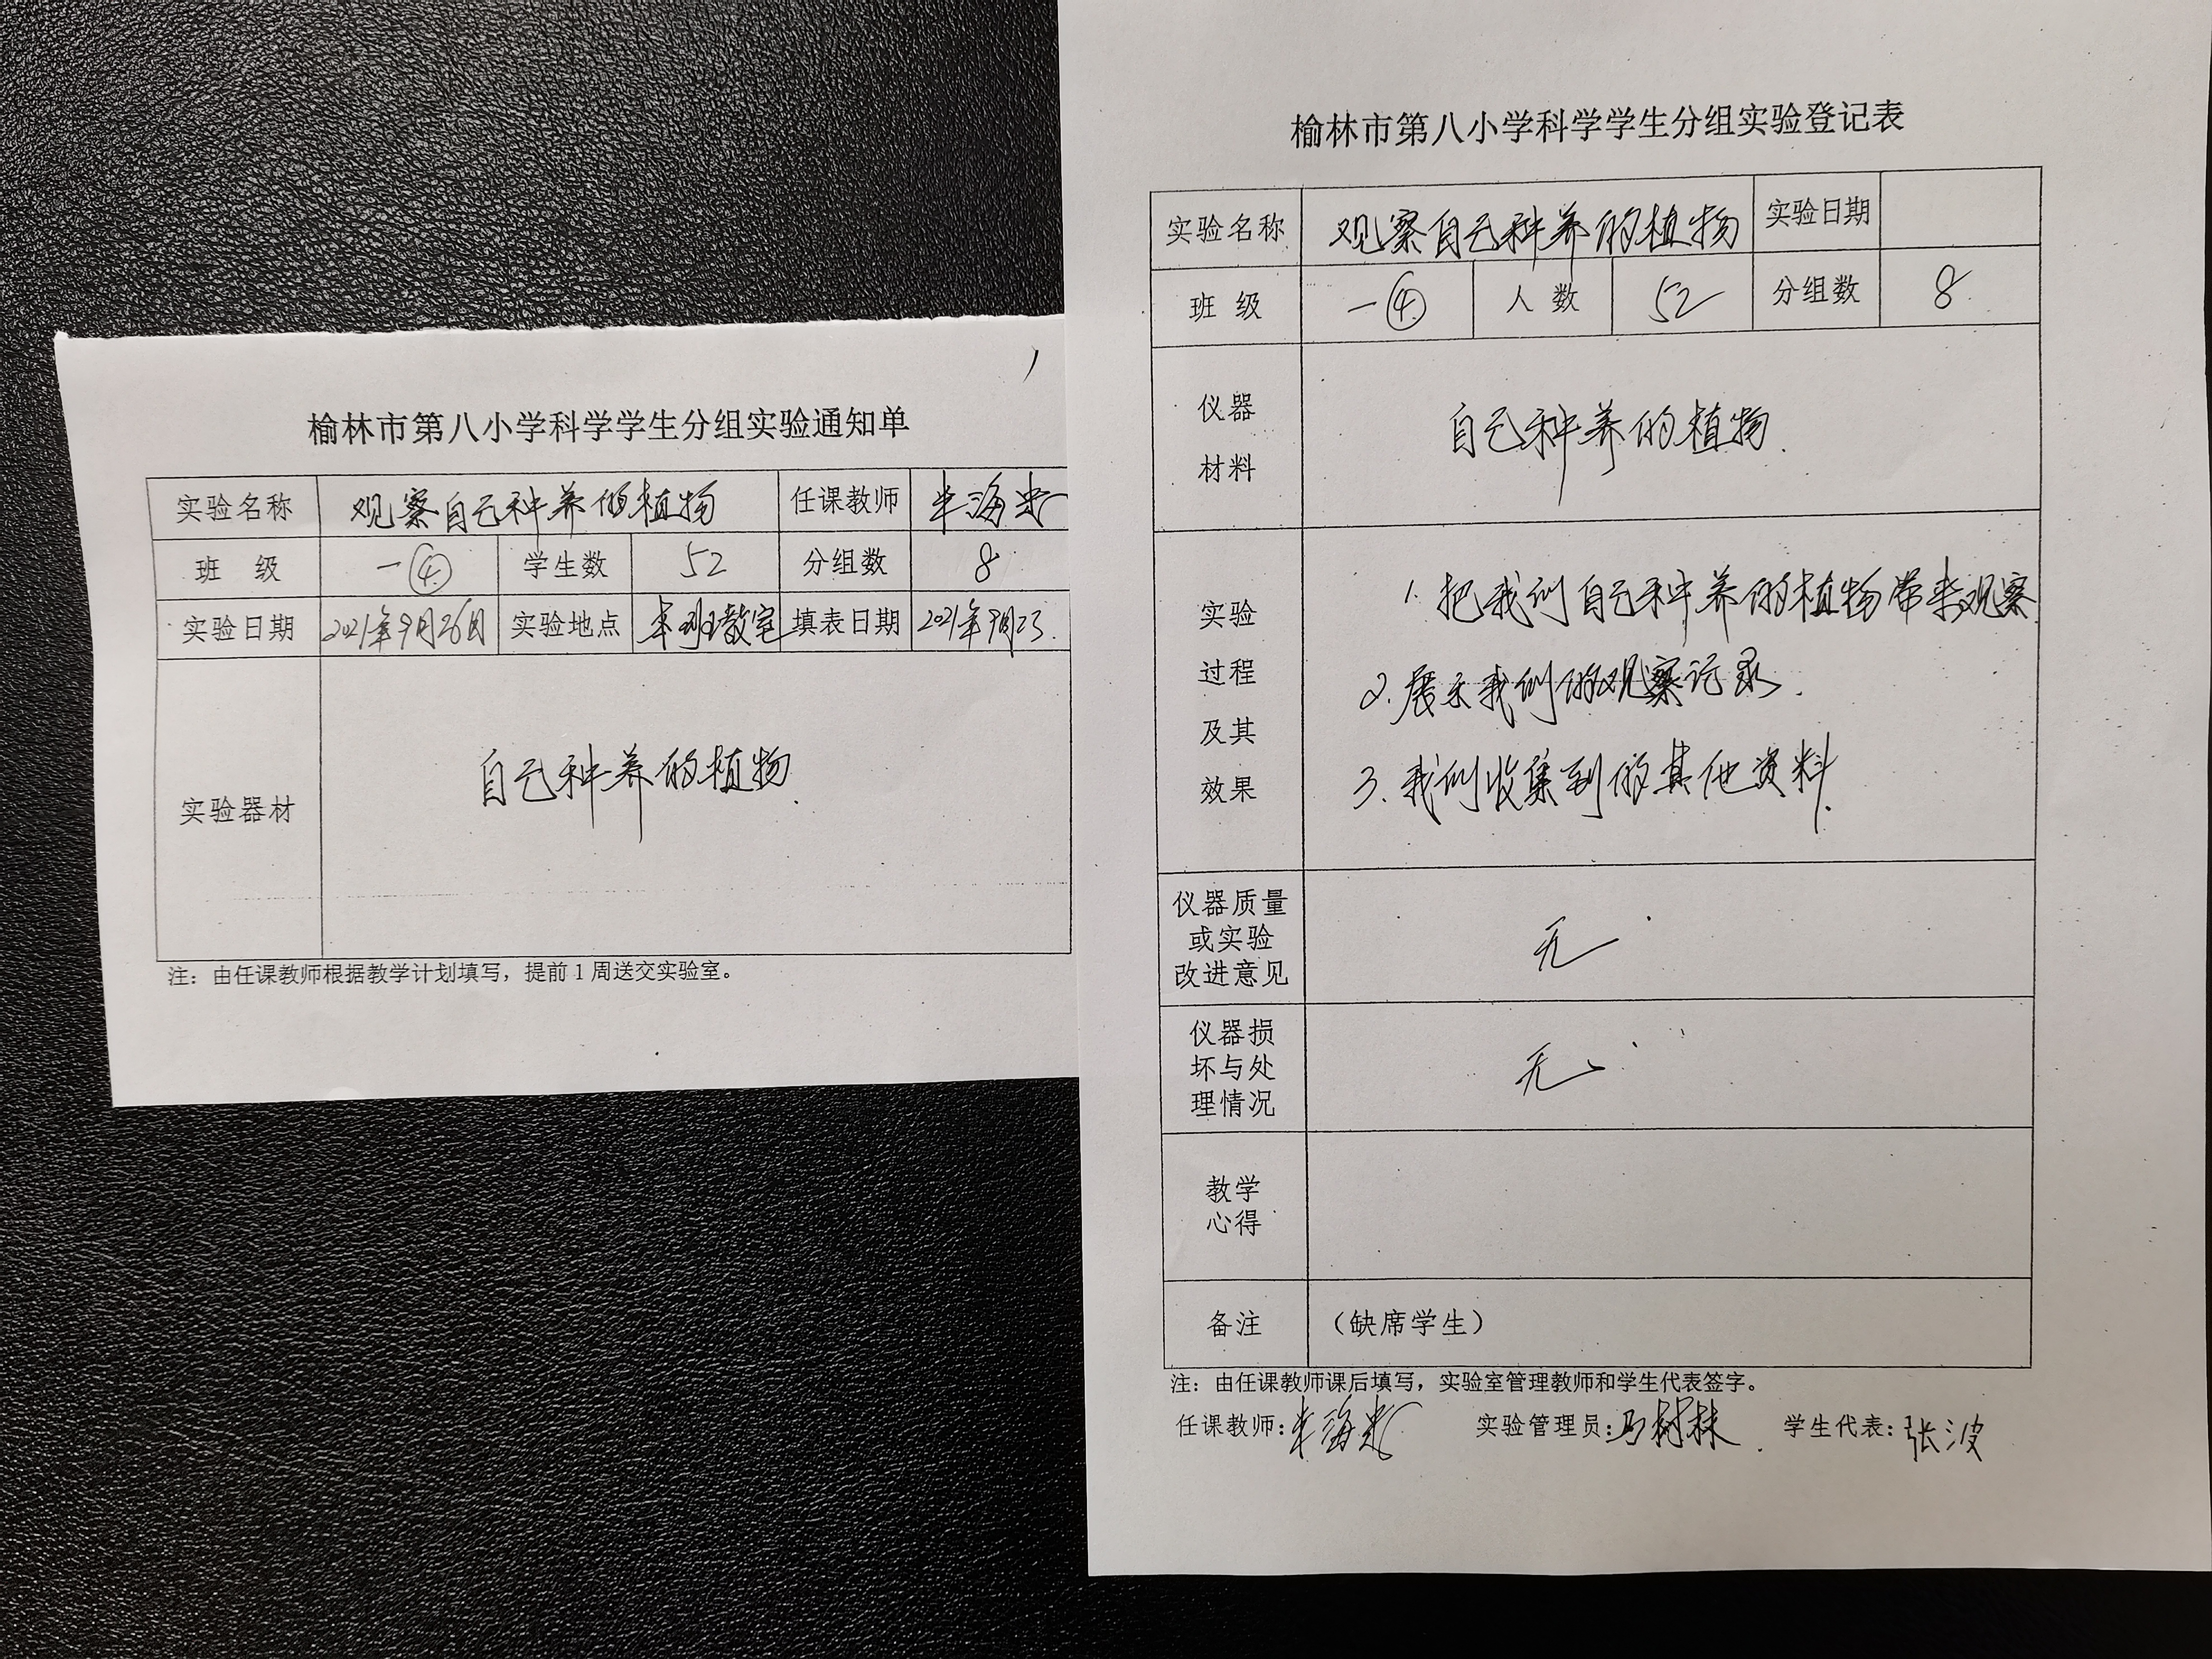 榆林市第八小学科学学生分组实验通知单
实验名称 观察自己种养的植物 任课教师
班 级 一④ 学生数 52 分组数 8
实验日期 2021年9月26日 实验地点 本班教室 填表日期 2021年9月23
实验器材 自己种养的植物.
注：由任课教师根据教学计划填写，提前1周送交实验室。
榆林市第八小学科学学生分组实验登记表
实验名称 观察自己种养的植物 实验日期
班 级 一④ 人 数 52 分组数 8
仪器
材料
自己种养的植物.
实验
过程
及其
效果
1. 把我们自己种养的植物带来观察
2. 展示我们的观察记录.
3. 我们收集到的其他资料.
仪器质量
或实验
改进意见
无
仪器损
坏与处
理情况
无
教学
心得
备注 （缺席学生）
注：由任课教师课后填写，实验室管理教师和学生代表签字。
任课教师: 实验管理员:马树林 学生代表:张波